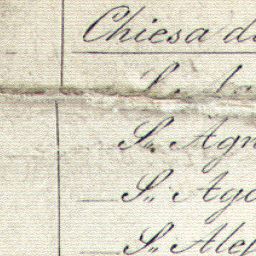 Chiesa di
S.,
S.,, Agn
S.,, Ago
S.,, Ales